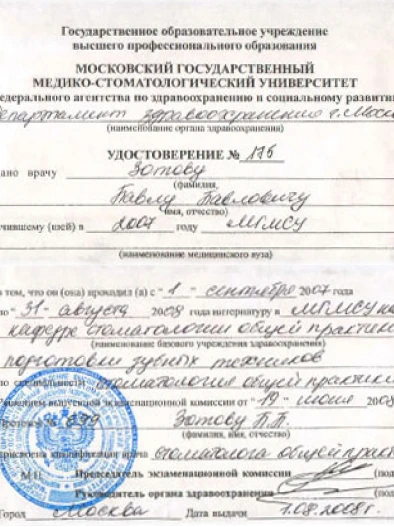 Государственное образовательное учреждение
высшего профессионального образования
МОСКОВСКИЙ ГОСУДАРСТВЕННЫЙ
МЕДИКО-СТОМАТОЛОГИЧЕСКИЙ УНИВЕРСИТЕТ
едерального агентства по здравоохранению и социальному развити
епартамент здравоохранения г. Моск
(наименование органа здравоохранения)
УДОСТОВЕРЕНИЕ № 175
дано врачу Зотову
(фамилия,
Павлу Павловичу
имя, отчество)
чившему (шей) в 2007 году МГМСУ
(наименование медицинского вуза)
в том, что он (она) проходил (а) с " 1 " сентября 2007 года
по " 31 " августа 2008 года интернатуру в МГМСУ на
кафедре стоматологии общей практики
(наименование базового учреждения здравоохранения)
подготовки зубных техников
по специальности стоматология общей практики
решением выпускной экзаменационной комиссии от " 19 " июня 2008
Протокол № 699 Зотову П.П.
(фамилия, имя, отчество)
присвоена квалификация врача стоматолога общей прак
М.П. Председатель экзаменационной комиссии (под
Руководитель органа здравоохранения (под
Город Москва Дата выдачи 1.08.2008г.